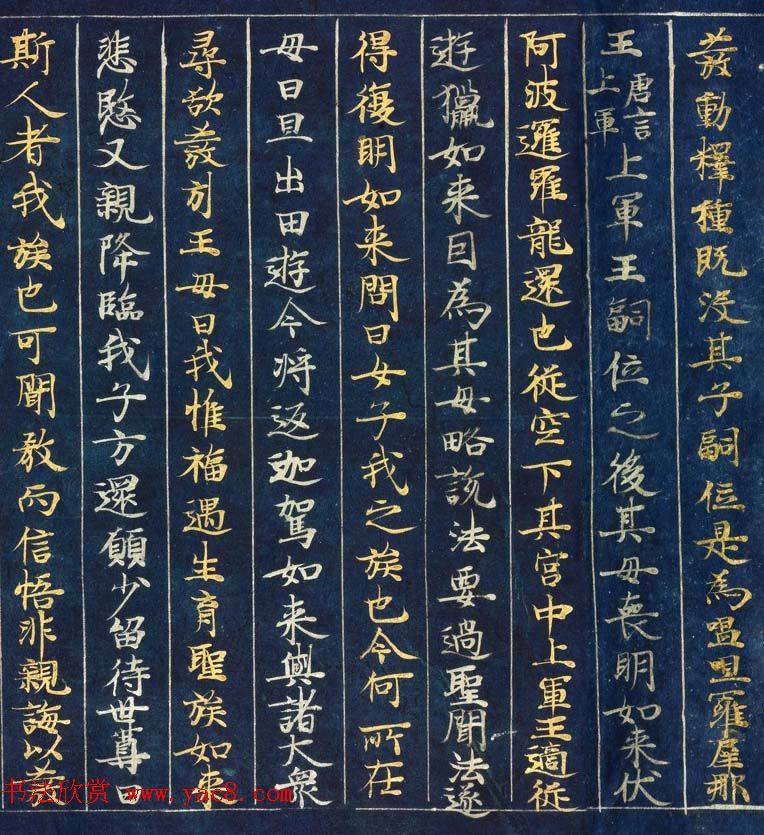 發動釋種既没其子嗣位是為嗢呾羅犀那
王唐言上軍上軍王嗣位之後其母喪明如来伏
阿波邏羅龍還也從空下其宮中上軍王適從
遊獵如来因為其母略說法要遇聖聞法遂
得復明如来問曰女子我之族也今何所在
母曰旦出田遊今將返迦駕如来與諸大衆
尋欲發引王母曰我惟福遇生育聖族如来
悲愍又親降臨我子方還願少留待世尊曰
斯人者我族也可聞教而信悟非親誨以發
书法欣赏 www.yac8.com